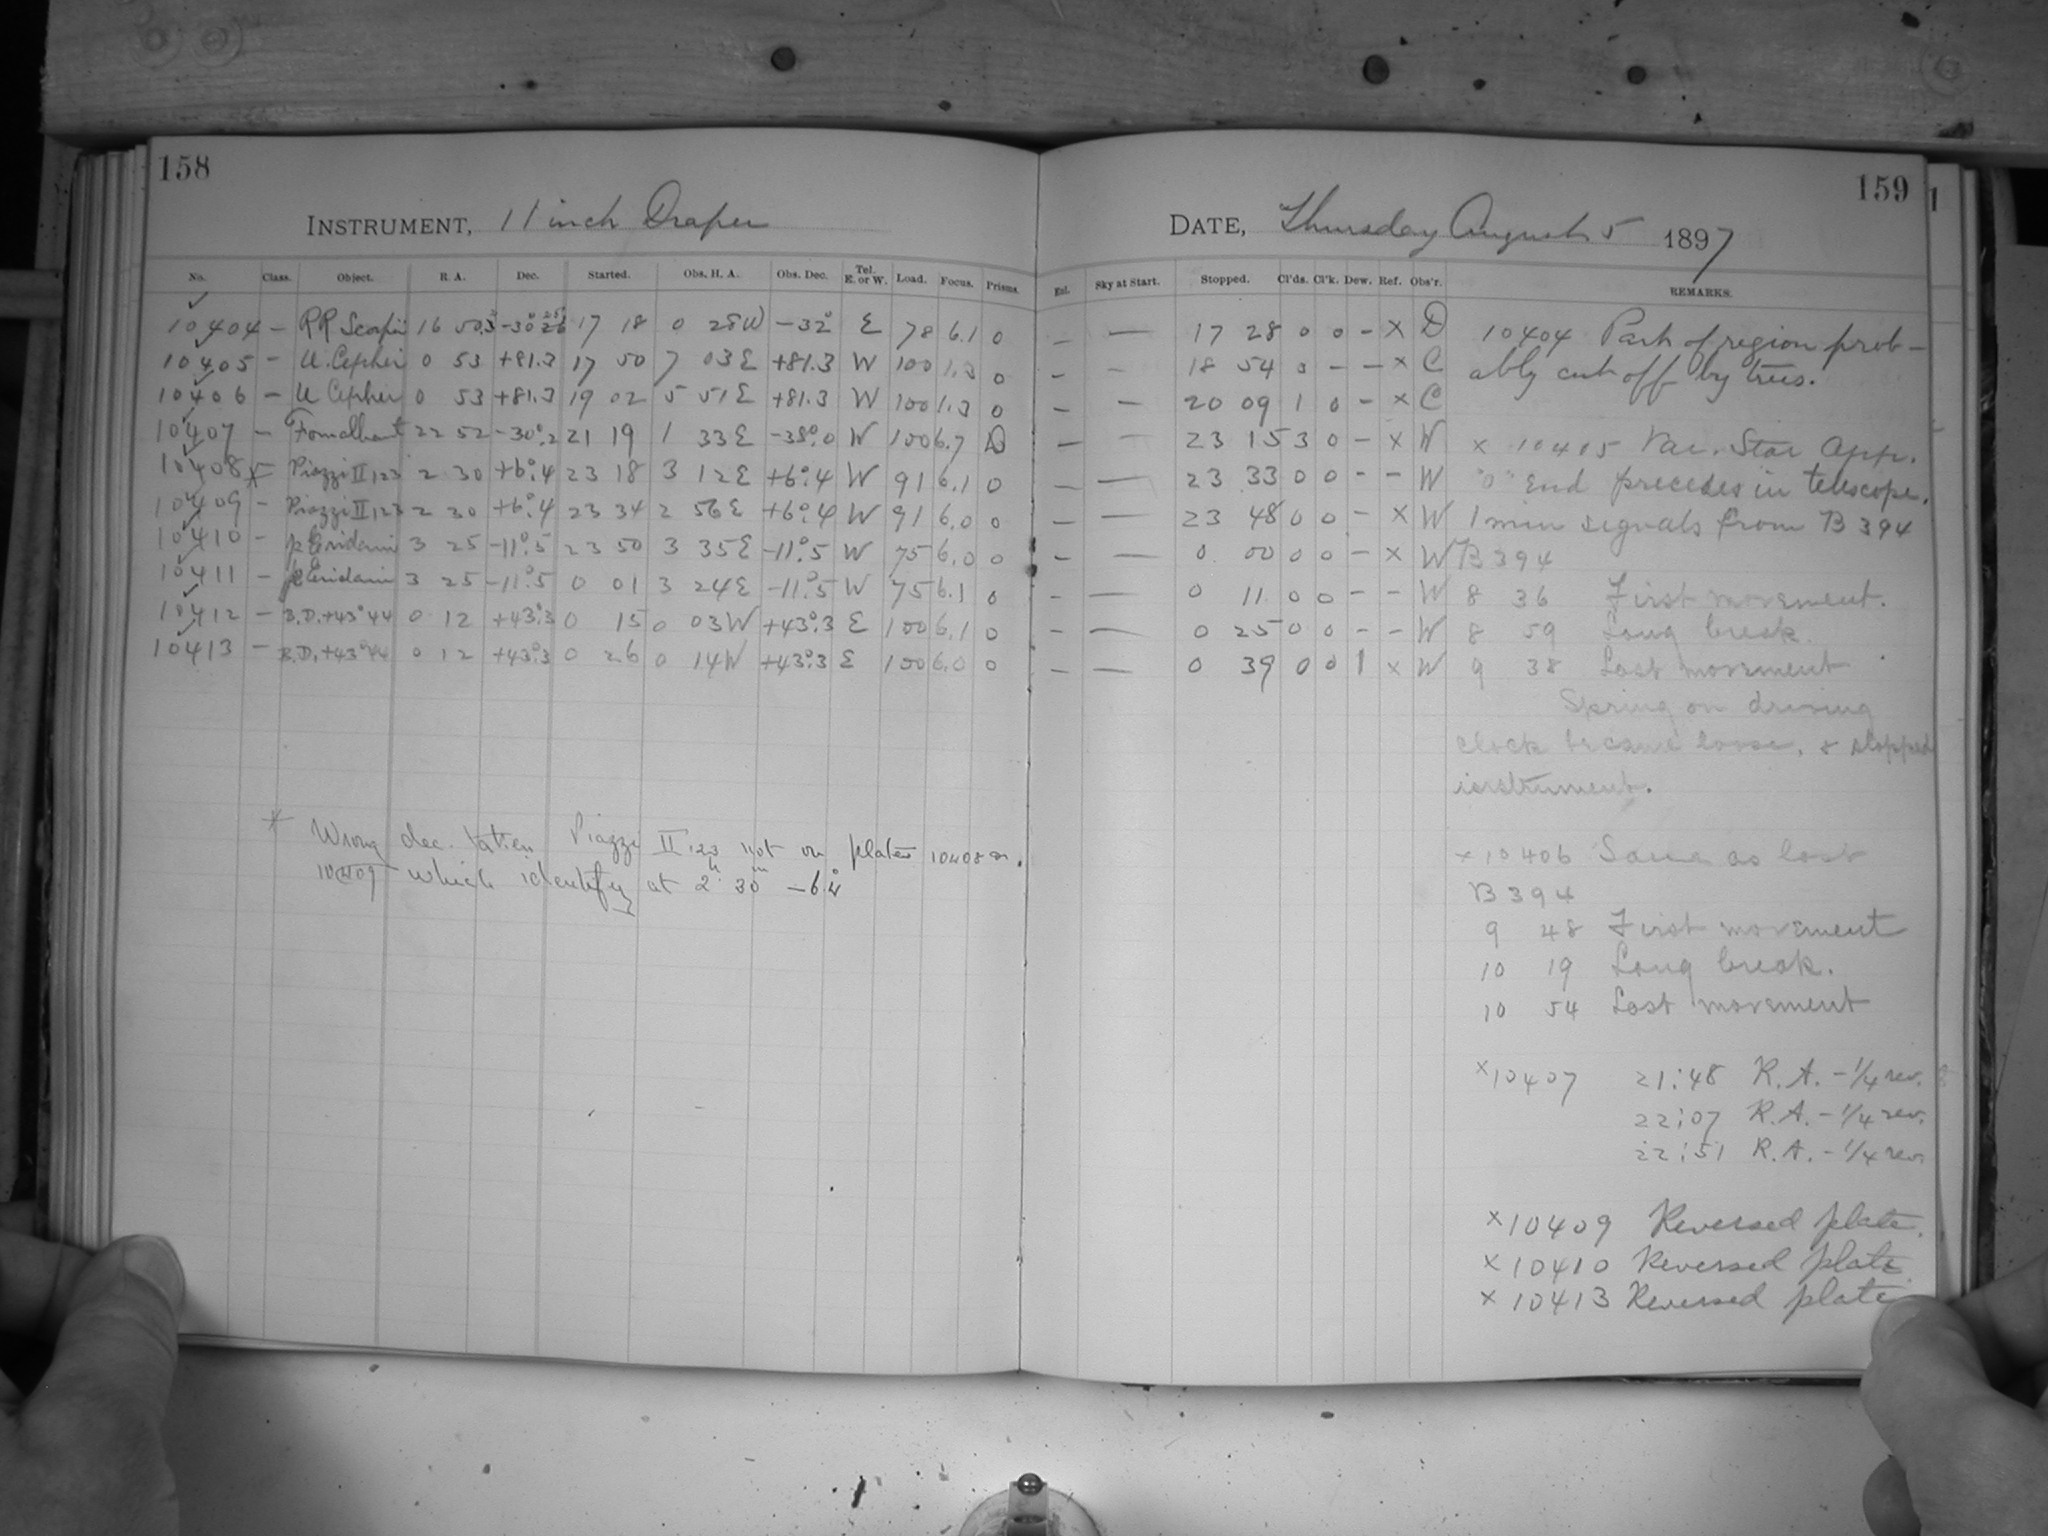 158
INSTRUMENT, 11 inch Draper
No. Class. Object. R. A. Dec. Started. Obs. H. A. Obs. Dec. Tel. E. or W. Load. Focus. Prisms.
10404 – RR Scorpii 16 50.3 –30° 17 18 0 28W –32° E 78 6.1 0
10405 – U. Cephei 0 53 +81.3 17 50 7 03E +81.3 W 100 1.3 0
10406 – U Cephei 0 53 +81.3 19 02 5 51E +81.3 W 100 1.3 0
10407 – Fomalhaut 22 52 –30°.2 21 19 1 33E –38°.0 W 100 6.7 D
10408 * – Piazzi II, 123 2 30 +6°.4 23 18 3 12E +6°.4 W 91 6.1 0
10409 – Piazzi II, 123 2 30 +6°.4 23 34 2 56E +6°.4 W 91 6.0 0
10410 – p Eridani 3 25 –11°.5 23 50 3 35E –11°.5 W 75 6.0 0
10411 – p Eridani 3 25 –11°.5 0 01 3 24E –11°.5 W 75 6.1 0
10412 – B.D. +43°44 0 12 +43°.3 0 15 0 03W +43°.3 E 100 6.1 0
10413 – B.D. +43°44 0 12 +43°.3 0 26 0 14W +43°.3 E 100 6.0 0
* Wrong dec. taken. Piazzi II 123 not on plates 10408 or
10409 which identify at 2h 30m –6°.4
159
DATE, Thursday August 5 1897
Exl. Sky at Start. Stopped. Cl'ds. Cl'k. Dew. Ref. Obs'r. REMARKS.
– — 17 28 0 0 – x D
– – 18 54 0 – – x C
– – 20 09 1 0 – x C
– — 23 15 3 0 – x W
– — 23 33 0 0 – – W
– — 23 48 0 0 – x W
– — 0 00 0 0 – x W
– — 0 11 0 0 – – W
– — 0 25 0 0 – – W
– — 0 39 0 0 1 x W
10404 Part of region prob–
ably cut off by trees.
x 10405 Var. Star App.
"0" End precedes in telescope.
1 min signals from B 394
B 394
8 36 First movement.
8 59 Long break.
9 38 Last movement
Spring on driving
clock became loose, & stopped
instrument.
x 10406 Same as last
B 394
9 48 First movement
10 19 Long break.
10 54 Last movement
x 10407 21:48 R.A. – 1/4 rev.
22:07 R.A. – 1/4 rev.
22:51 R.A. – 1/4 rev.
x 10409 Reversed plate.
x 10410 Reversed plate
x 10413 Reversed plate